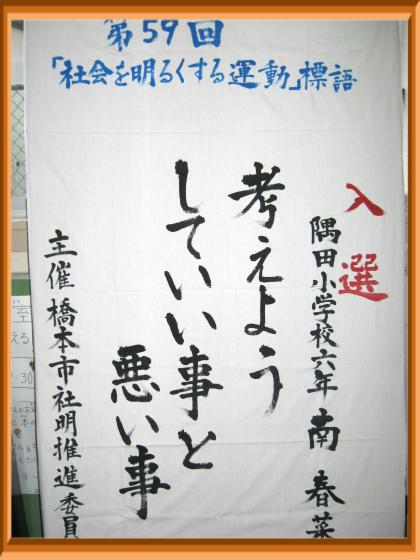 第59回
「社会を明るくする運動」標語
入選
隅田小学校六年 南 春菜
考えよう
していい事と
悪い事
主催 橋本市社明推進委員